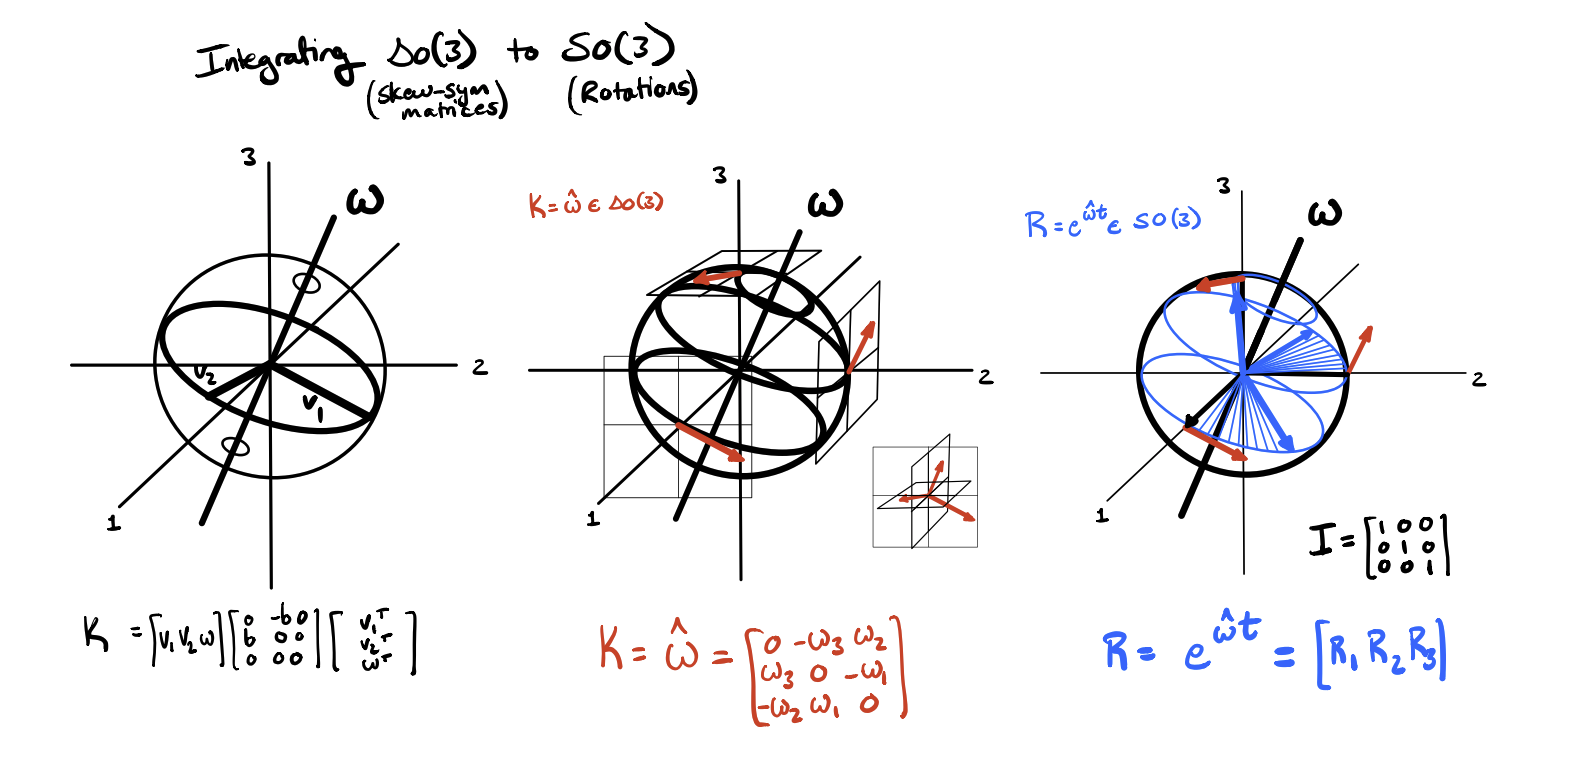 Integrating so(3) to SO(3)
(skew-sym matrices) (Rotations)
3
ω
2
1
v₂
v₁
K = [v₁ v₂ ω] [0 -b 0
b 0 0
0 0 0] [v₁ᵀ
v₂ᵀ
ωᵀ]
K = ω̂ ∈ so(3)
3
ω
2
1
K = ω̂ = [0 -ω₃ ω₂
ω₃ 0 -ω₁
-ω₂ ω₁ 0]
R = e^ω̂t ∈ SO(3)
3
ω
2
1
I = [1 0 0
0 1 0
0 0 1]
R = e^ω̂t = [R₁ R₂ R₃]